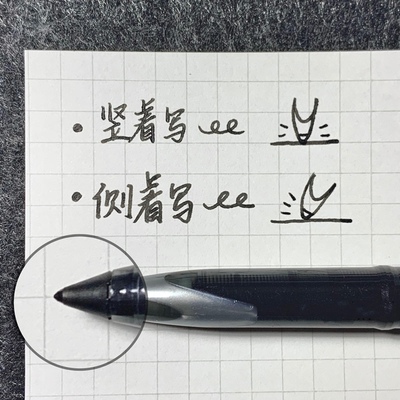 • 竖着写 ee
• 侧着写 ee